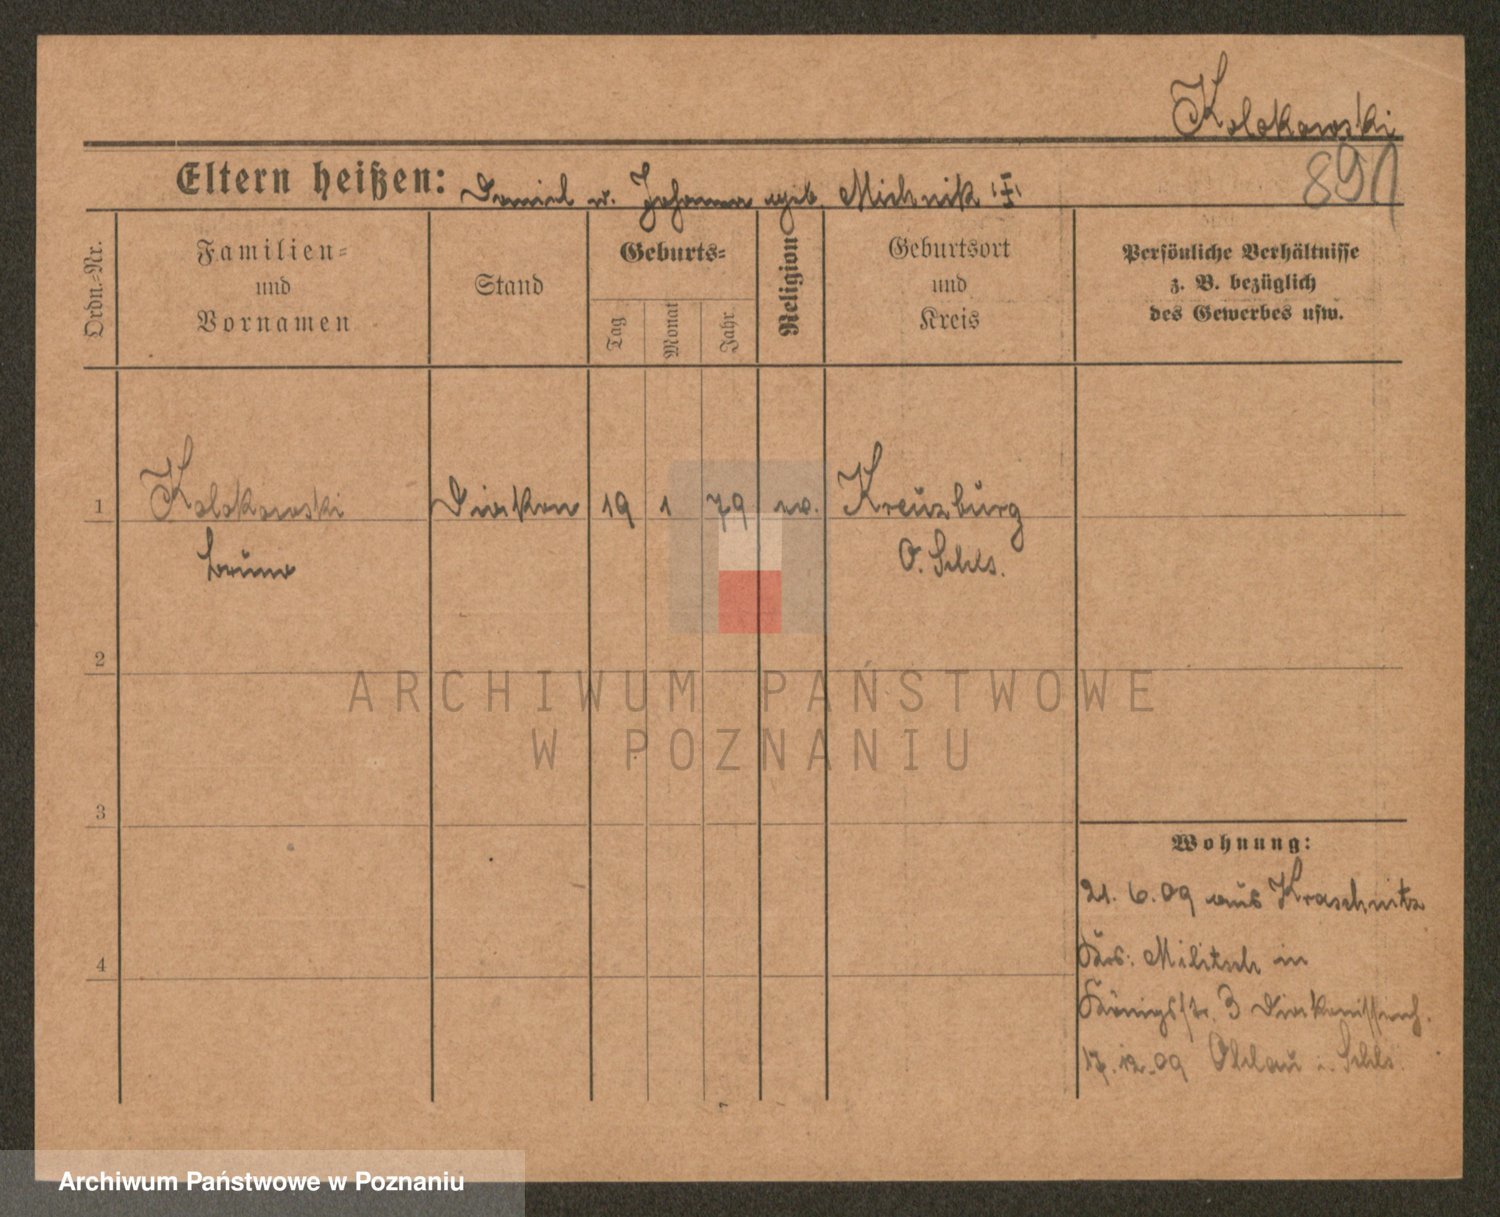 Kolakowski
891
Eltern heißen: Daniel u. Johanna geb. Michnik
Ordn.-Nr.
Familien-
und
Vornamen
Stand
Geburts-
Tag
Monat
Jahr
Religion
Geburtsort
und
Kreis
Persönliche Verhältnisse
z. B. bezüglich
des Gewerbes usw.
1 Kolakowski Diakon 19 1 79 ev. Kreuzburg
Bruno O. Schls.
2
ARCHIWUM PAŃSTWOWE
W POZNANIU
3
Wohnung:
21. 6. 09 aus Kraschnitz
4
Krs. Militsch in
Königstr. 3
17. 12. 09 Ohlau i. Schls.
Archiwum Państwowe w Poznaniu